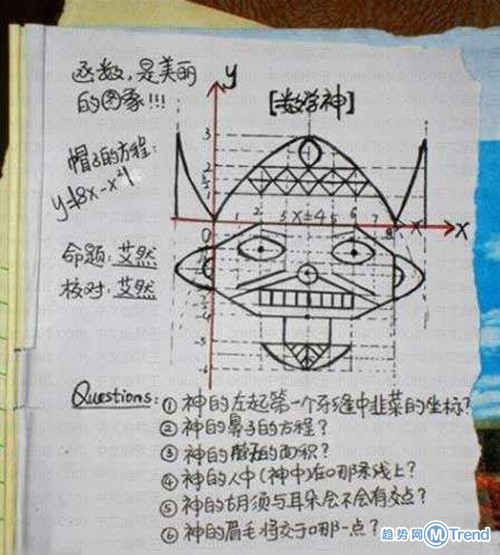 函数，是美丽
的图象!!!
[数学神]
帽子的方程:
y=|8x-x²|
命题: 艾然
校对: 艾然
y
3
2
1
0
1
2
3
x=4
5
6
7
8
x
-5
-6
Questions: ① 神的左起第一个牙缝中韭菜的坐标?
② 神的鼻子的方程?
③ 神的帽子的面积?
④ 神的人中(神中)在哪条线上?
⑤ 神的胡须与耳朵会不会有交点?
⑥ 神的眉毛将交于哪一点?
趋势网 M Trend